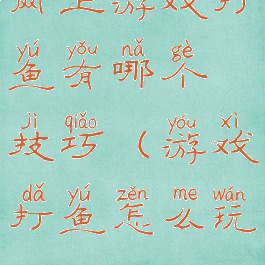 网上游戏打
yú yǒu nǎ gè
鱼有哪个
jì qiǎo yóu xì
技巧（游戏
dǎ yú zěn me wán
打鱼怎么玩